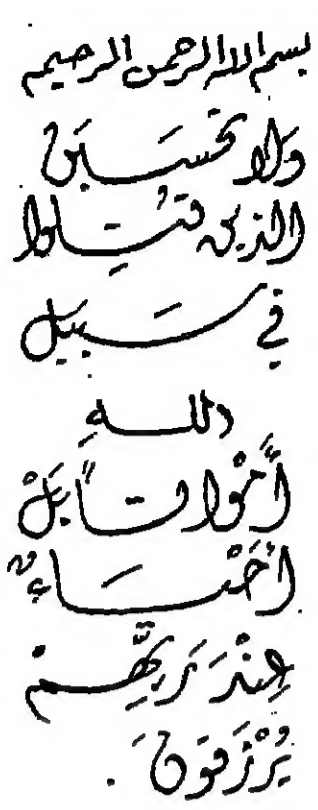 بسم الله الرحمن الرحيم
وَلا تحسَبَنَ
الذين قُتِلوا
في سَبِيَلِ
اللهِ
أَمْواتاً بَلْ
أَحْيَاءٌ
عِنْدَ رَبِّهِمْ
يُرْزَقونَ.